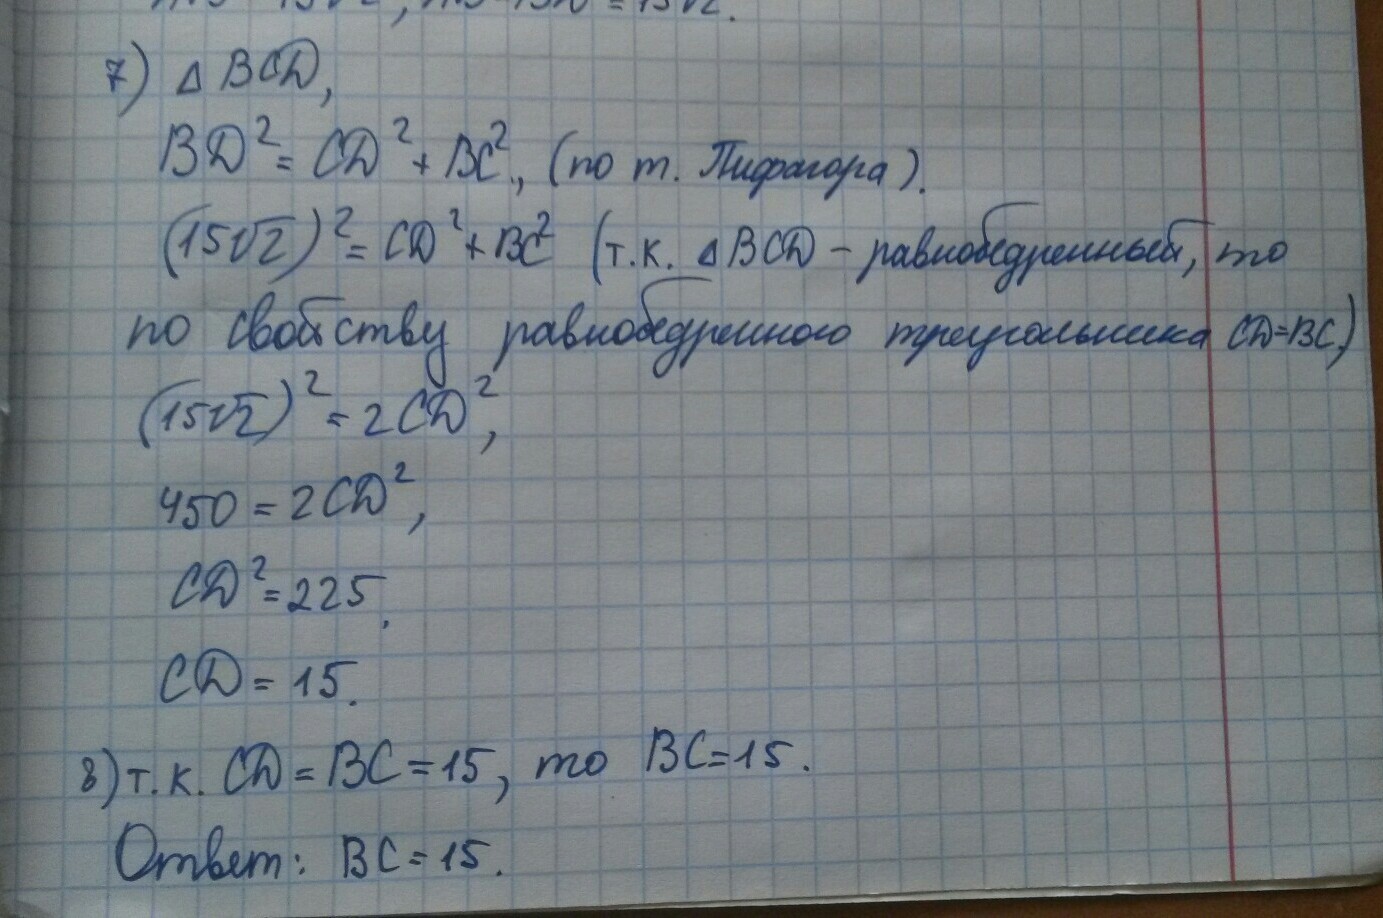 = 15√2.
7) △ BCD,
BD² = CD² + BC², (по т. Пифагора).
(15√2)² = CD² + BC² (т.к. △BCD – равнобедренный, то
по свойству равнобедренного треугольника CD=BC)
(15√2)² = 2CD²,
450 = 2CD²,
CD² = 225,
CD = 15.
8) т.к. CD = BC = 15, то BC = 15.
Ответ: BC = 15.